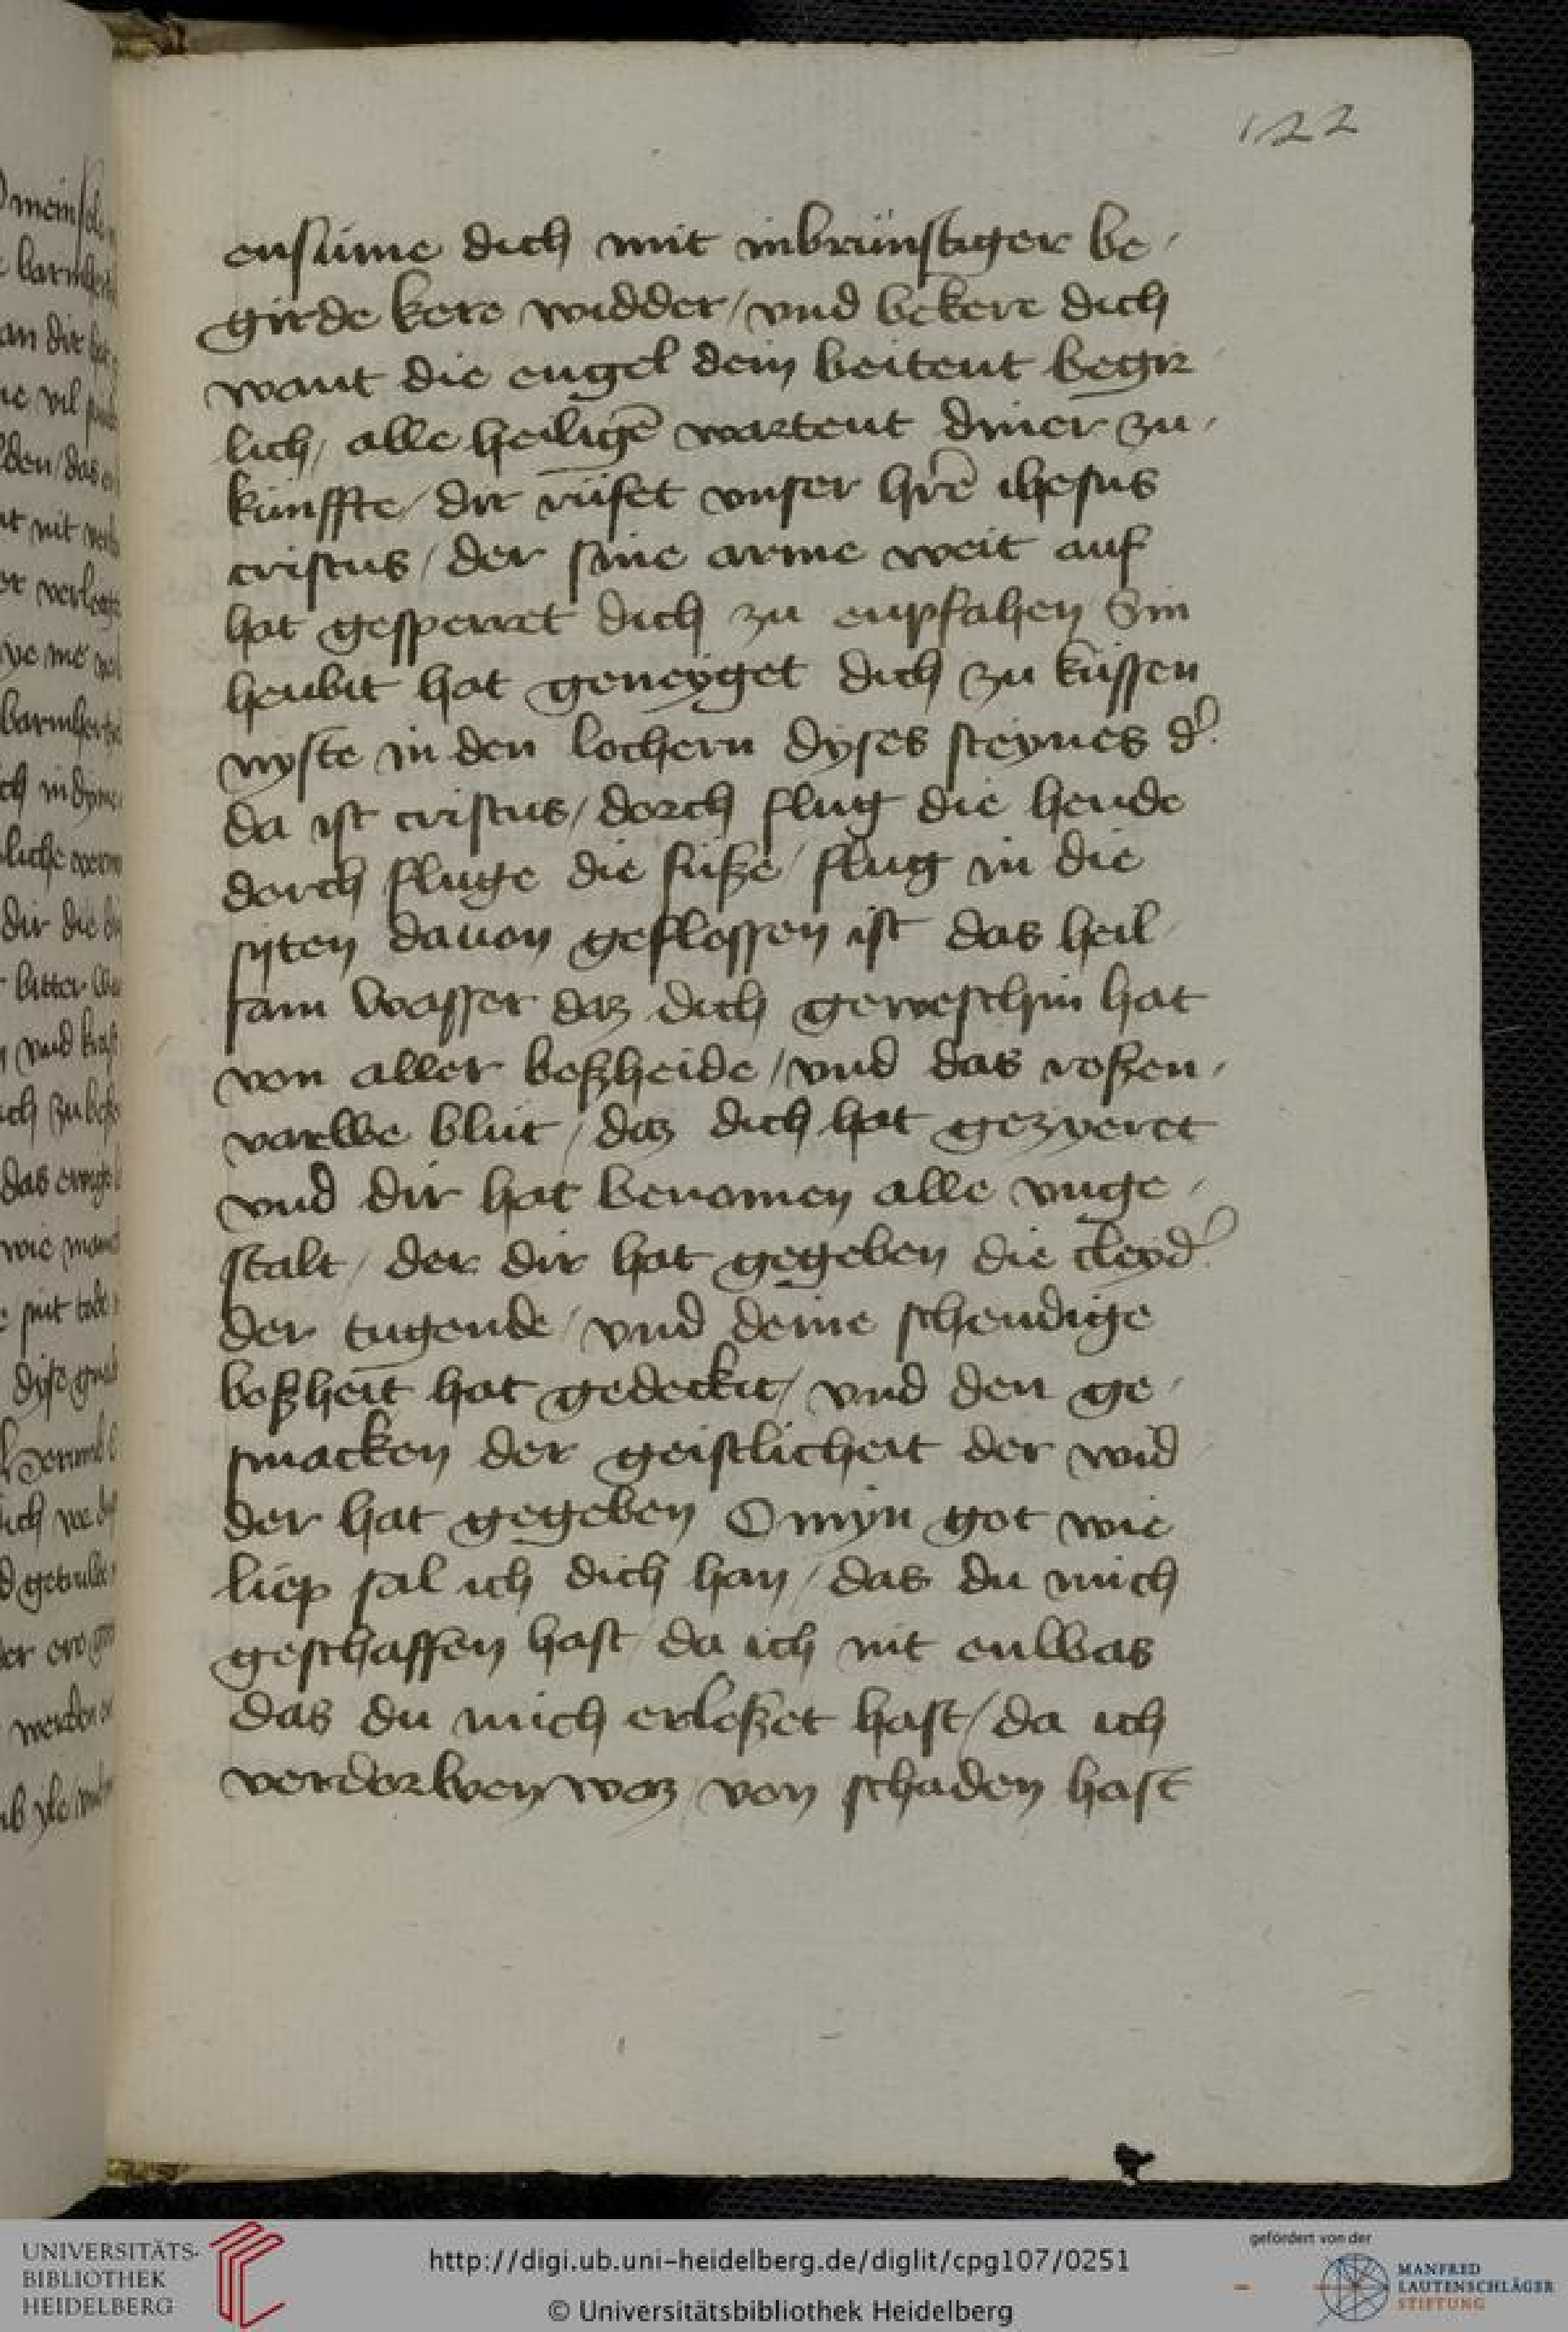 122
ensüme dich mit inbrünstiger be-
girde kere widder / vnd bekere dich
want die engel dein beitent begir
lich / alle heiligē wartent diner zu-
künffte / dir rüfet vnser hr̄e ihesus
cristus / der sine arme weit auf
hat gesperret dich zu enpfahen Sin
heubit hat geneyget dich zu küssen
nyste in den lochern dyses steynes d'
da ist cristus / dorch flug die hende
dorch fluge die füsze / flug in die
sijten davon geflossen ist das heil
sam wasser daz dich geweschin hat
von aller boszheide / vnd das roszen-
varwe blut / daz dich hat gezyeret
vnd dir hat benomen alle vnge-
stalt / der dir hat gegeben die cleyd'
der tugende / vnd deine schendige
boszheit hat gedeckit / vnd den ge-
smacken der geistlicheit der wid
der hat gegeben O myn got wie
liep sal ich dich han / das du mich
geschaffen hast da ich nit enwas
das du mich erloszet hast / da ich
verdorben waz / von schaden hast
UNIVERSITÄTS-
BIBLIOTHEK
HEIDELBERG
http://digi.ub.uni-heidelberg.de/diglit/cpg107/0251
© Universitätsbibliothek Heidelberg
gefördert von der
MANFRED
LAUTENSCHLÄGER
STIFTUNG